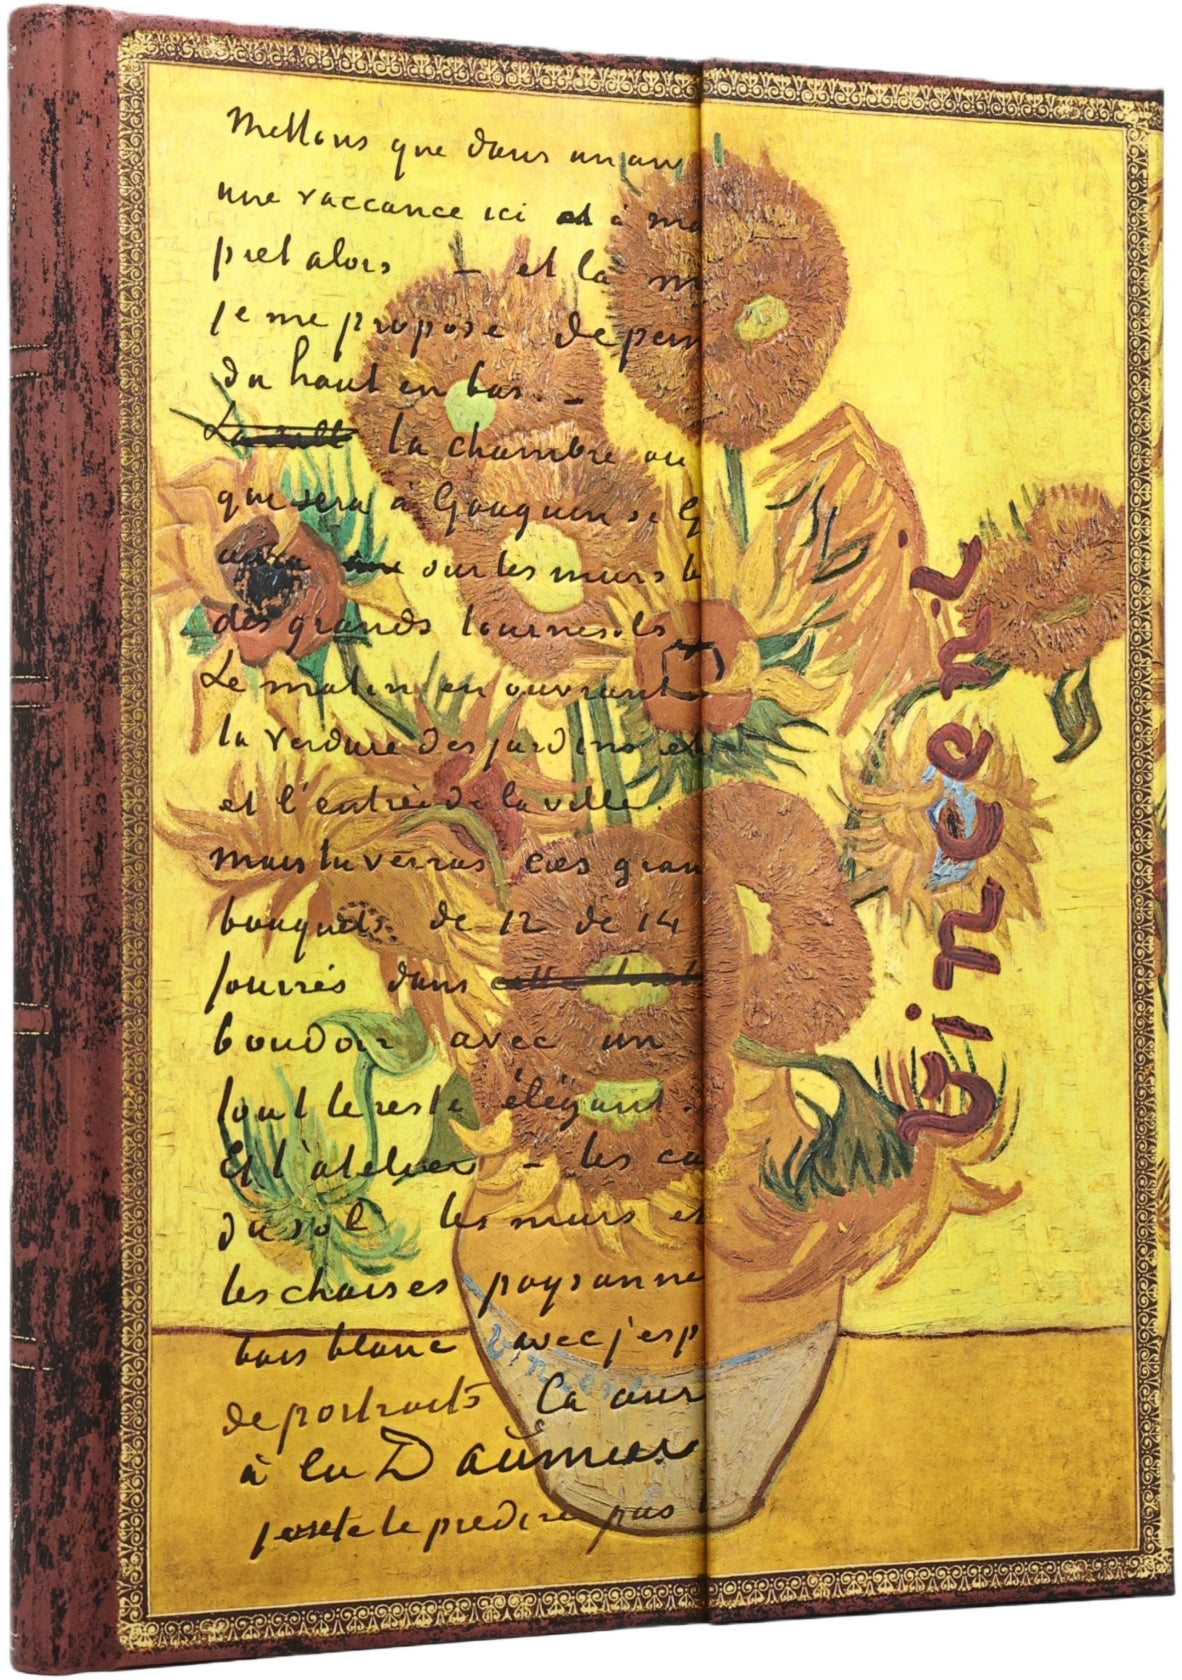 Mettons que dans un an
une vaccance ici et à mo
pret alors – et la m
je me propose de pein
du haut en bas. –
La salle la chambre ou
que sera à Gauguin si G
aura une sur les murs b
des grands tournesols
Le matin en ouvrant
la verdure des jardins et
et l'entrée de la ville.
Mais tu verras ces gran
bouquets de 12 de 14
fourrés dans cette tout
boudoir avec un
tout le reste élégant.
Et l'atelier – les ca
du sol les murs et
les chaises paysanne
bois blanc avec j'esp
de portraits Ca aur
à la Daumier
je te le predire pas
Vincent
Vincent